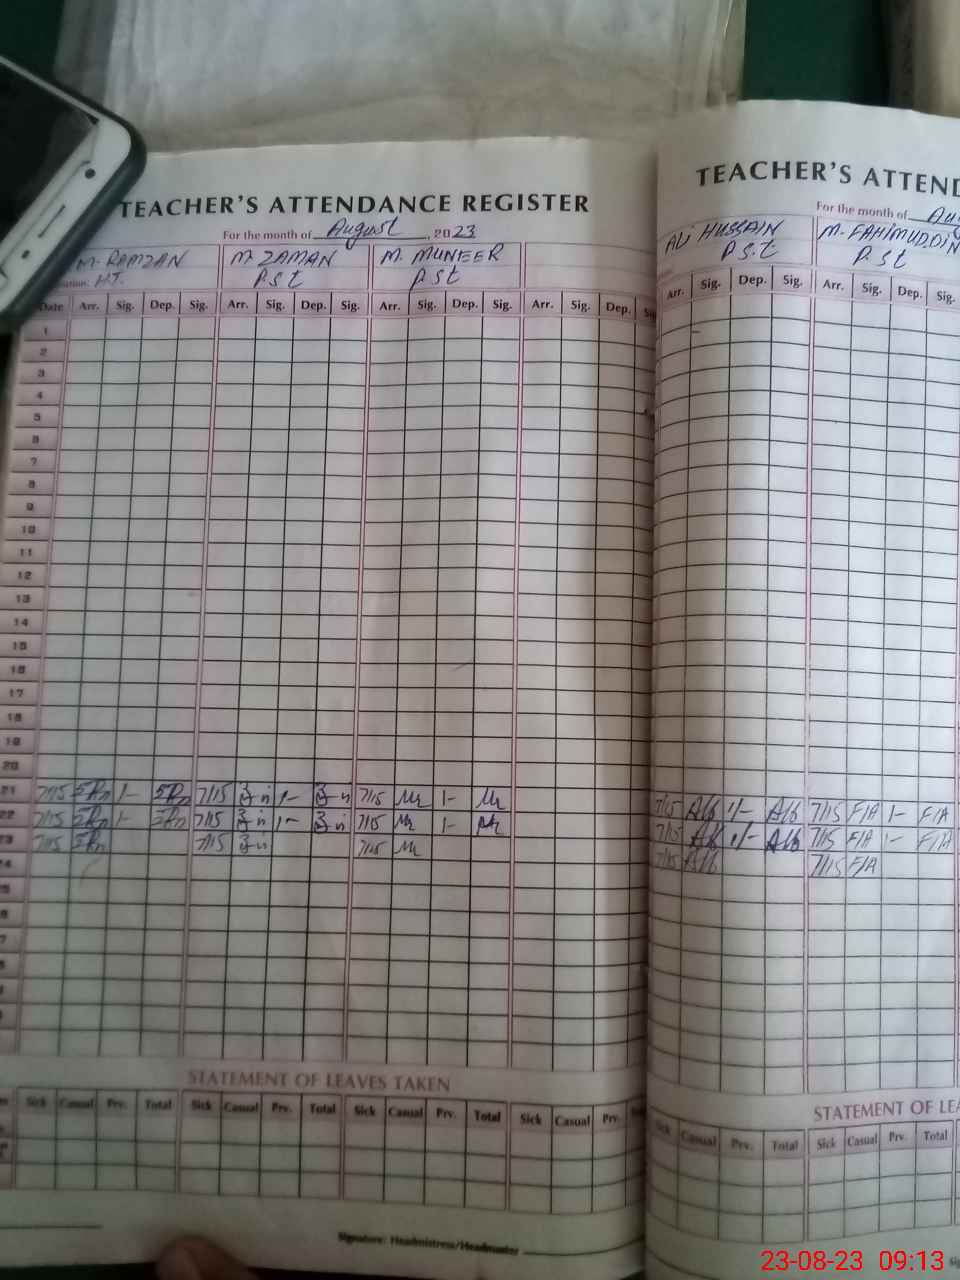 TEACHER'S ATTENDANCE REGISTER
For the month of August, 2023
M. RAMZAN M. ZAMAN M. MUNEER
H.T. P.S.t P.St
Date Arr. Sig. Dep. Sig. Arr. Sig. Dep. Sig. Arr. Sig. Dep. Sig. Arr. Sig. Dep.
1
2
3
4
5
6
7
8
9
10
11
12
13
14
15
16
17
18
19
20
21 7/15 1- 7/15 1- 7/15 1-
22 7/15 1- 7/15 1- 7/15 1-
23 7/15 7/15 7/15
STATEMENT OF LEAVES TAKEN
Sick Casual Prv. Total Sick Casual Prv. Total Sick Casual Prv. Total Sick Casual Prv.
Signature: Headmistress/Headmaster
TEACHER'S ATTEND
For the month of Aug
ALI HUSSAIN M. FAHIMUDDIN
P.S.t P.St
Arr. Sig. Dep. Sig. Arr. Sig. Dep. Sig.
7/15 Alb 1/- Alb 7/15 F/A 1- F/A
7/15 Alb 1/- Alb 7/15 F/A 1- F/A
7/15 Alb 7/15 F/A
STATEMENT OF LEA
Sick Casual Prv. Total Sick Casual Prv. Total
23-08-23 09:13